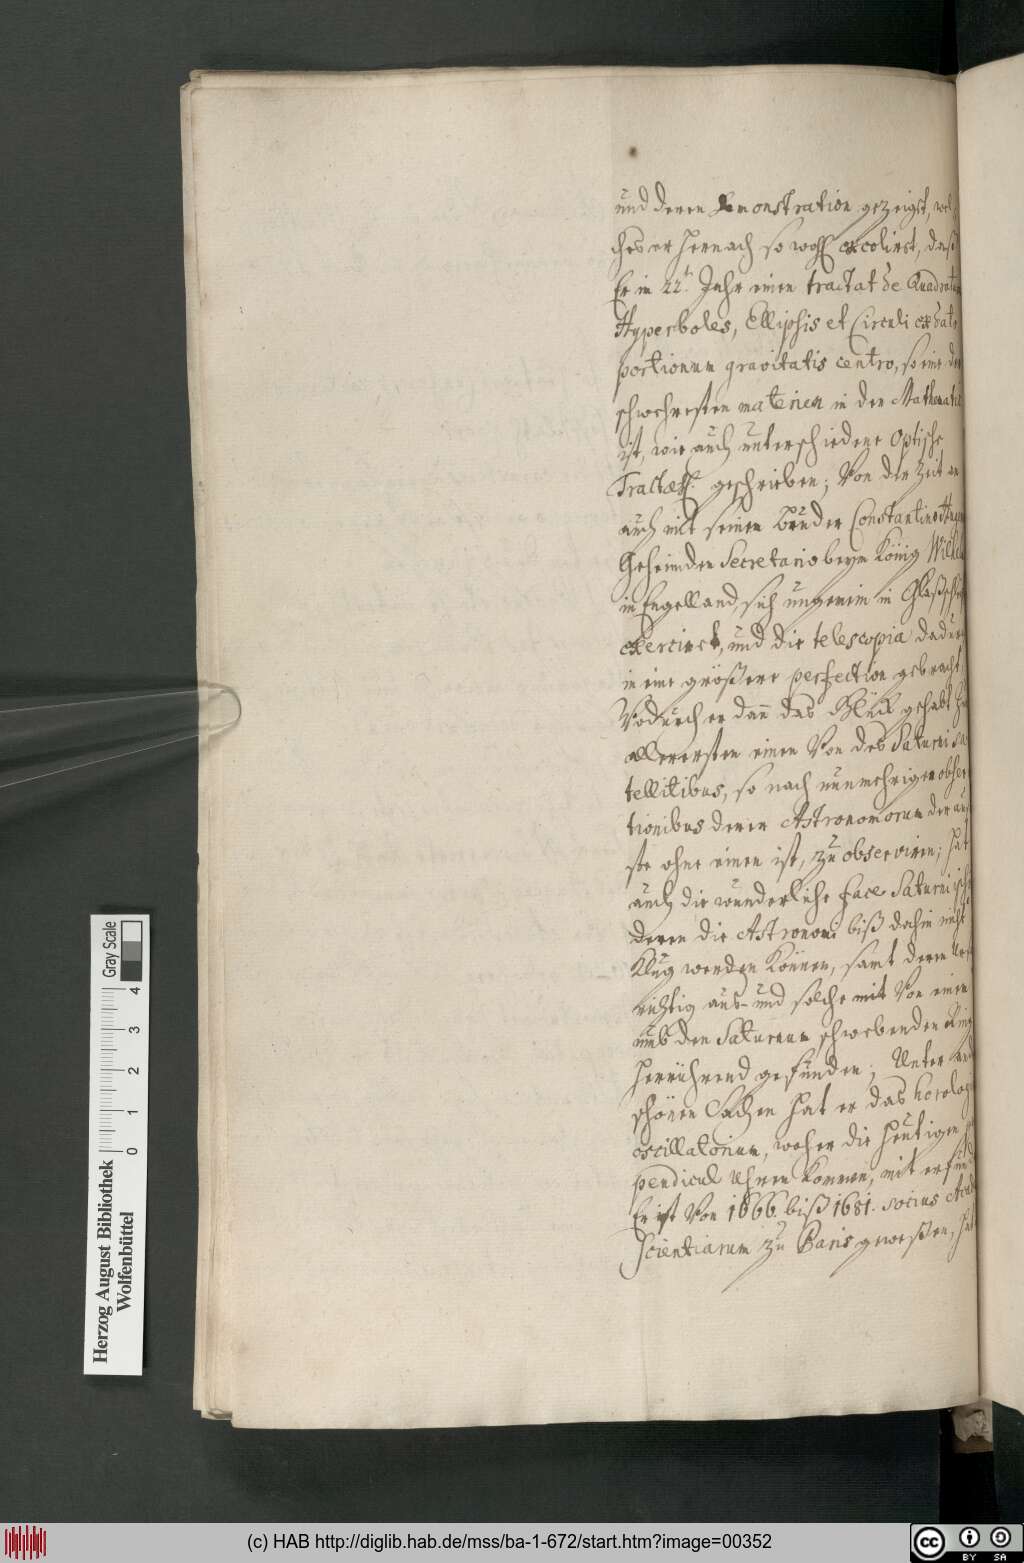 und deren Demonstration gezeigt, wel-
ches er hernach so wohl excolirt, daß
Er in 22t. Jahr einen tractat de Quadratur
Hyperboles, Ellipsis et Circuli ex dato
portionum gravitatis centro, so eine der
schwehresten materien in der Mathematic
ist, wie auch unterschiedene Optische
Tractat. geschrieben; Von der Zeit an
auch mit seinem Bruder Constantino
Geheimden Secretario beym König Wilhelm
in Engelland, sich ungemein in Glaß
exercirt, und die telescopia dadurch
in eine größere perfection gebracht
Wodurch er dann das Glück gehabt
allerersten einen Von des Saturni sa-
tellitibus, so nach nunmehrigen obser
tionibus derer Astronomorum der
ste ohne einen ist, zu observiren; hat
auch die wunderliche face Saturni
deren die Astronomi biß dahin nicht
klug werden können, samt deren
richtig aus- und solche mit Von einem
umb den Saturnum schwebenden Ring
herrührend gefunden; Unter
schönen Sachen hat er das horologium
oscillatorium, woher die heutigen
pendicul Uhren kommen, mit erfund
Er ist Von 1666. biß 1681. socius Acad
Scientiarum zu Paris geweßen, hat
Herzog August Bibliothek
Wolfenbüttel
0 1 2 3 4
Gray Scale
(c) HAB http://diglib.hab.de/mss/ba-1-672/start.htm?image=00352
cc BY SA